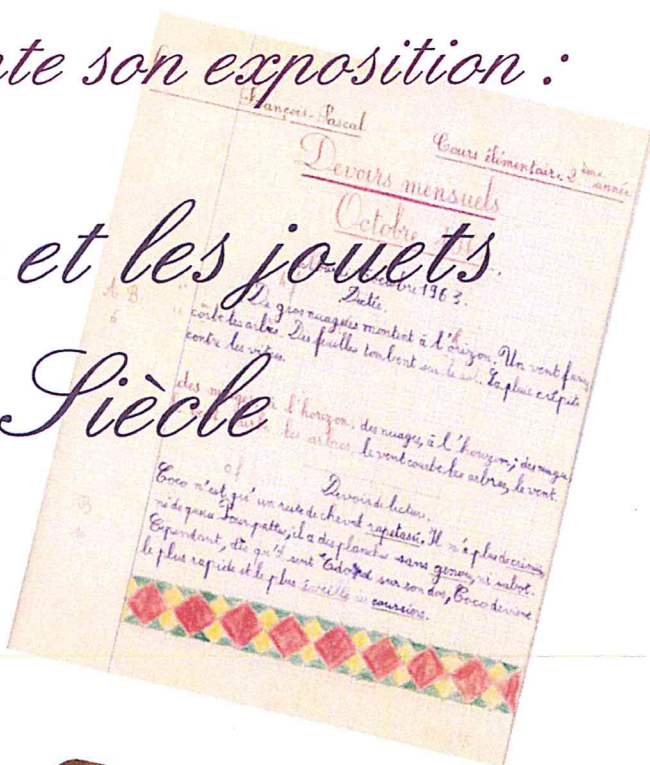 nte son exposition :
François-Pascal
Cours élémentaire 2ème année
Devoirs mensuels
Octobre
et les jouets
1963.
Dictée.
De gros nuages montent à l'orizon. Un vent
courbe les arbres. Des feuilles tombent sur le sol. La pluie crépite
contre les vitres.
Siècle
des nuages l'horizon, des nuages, à l'horizon; des nuages
les arbres le vent courbe les arbres, le vent
Devoir de lecture.
Coco n'est qu'un reste de cheval rapetassé. Il n'a plus de crinière,
ni de queue. Pour pattes, il a des planches sans genou, ni sabot.
Cependant, dès qu'il sent sur son dos, Coco devient
le plus rapide et le plus coursiers.